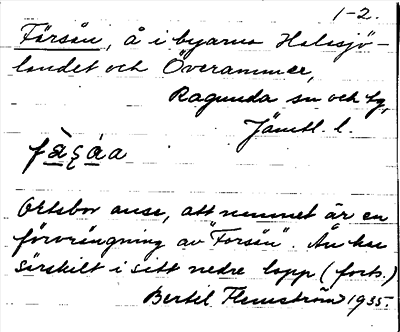 1-2.
Fårsån, å i byarna Halasjö-
landet och Överammer,
Ragunda sn och tg,
Jämtl. l.
Ortsbor anse, att namnet är en
förvrängning av "Forsån". Ån har
särskilt i sitt nedre lopp (forts.)
Bertil Flemström 1935